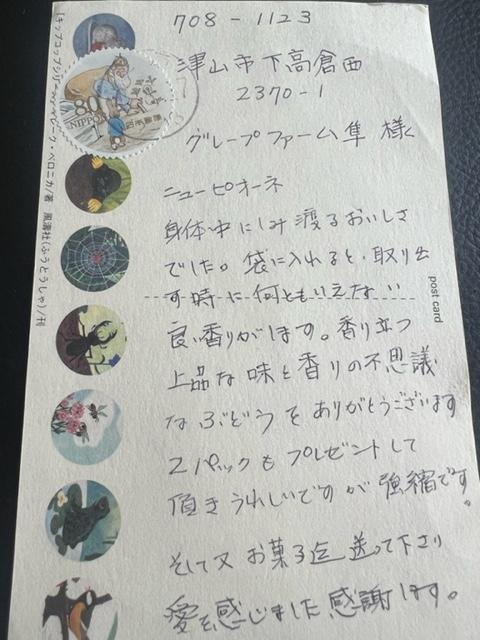 708-1123
津山市下高倉西
2370-1
グループファーム隼 様
ニューピオーネ
身体中にしみ渡るおいしさ
でした。袋に入れると、取り出
す時に何ともいえない
良い香りがします。香り立つ
上品な味と香りの不思議
なぶどうをありがとうございます
2パックもプレゼントして
頂きうれしいですが強縮です。
そして又お菓子迄送って下さり
愛を感じました感謝します。
post card
80
NIPPON
ベロニカ/著 風濤社(ふうとうしゃ)/刊